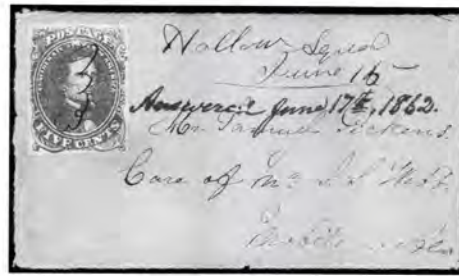 POSTAGE
FIVE CENTS
Hollow Square
June 15
Answered June 17th, 1862.
Mr. Samuel Pickens.
Care of Mr
Mobile